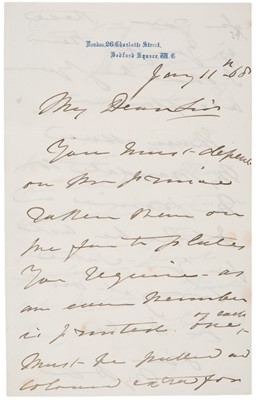 London, 26 Charlotte Street,
Bedford Square, W.C
Jany 11th 68
My Dear Sir
You must depend
on
taken them on
me for the plates
You require - as
an even number
of each
is printed. one,
Must be pulled and
coloured extra for